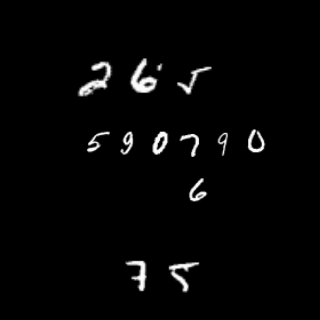 265
590790
6
75